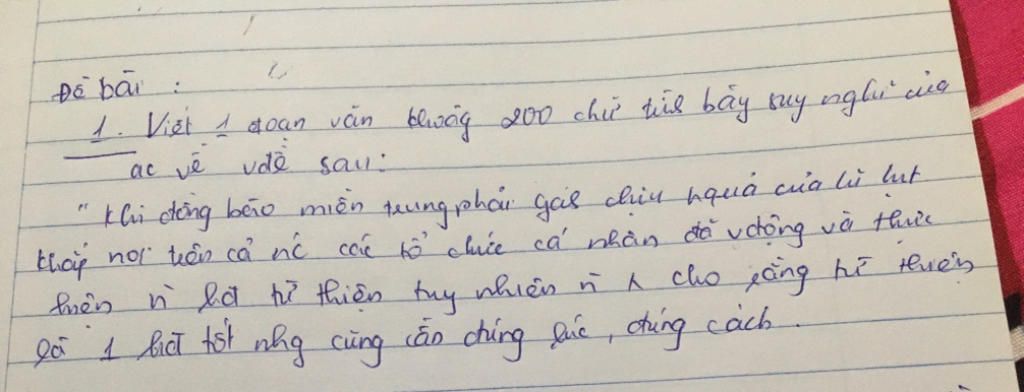 Đề bài :
1. Viết 1 đoạn văn khoảng 200 chữ trình bày suy nghĩ của
ac về vđề sau:
"Khi đồng bào miền trung phải gánh chịu hquả của lũ lụt
khắp nơi trên cả nc các tổ chức cá nhân đã vđộng và thực
hiện từ thiện tuy nhiên cho rằng từ thiện
là 1 tốt nhg cũng cần đúng lúc, đúng cách.